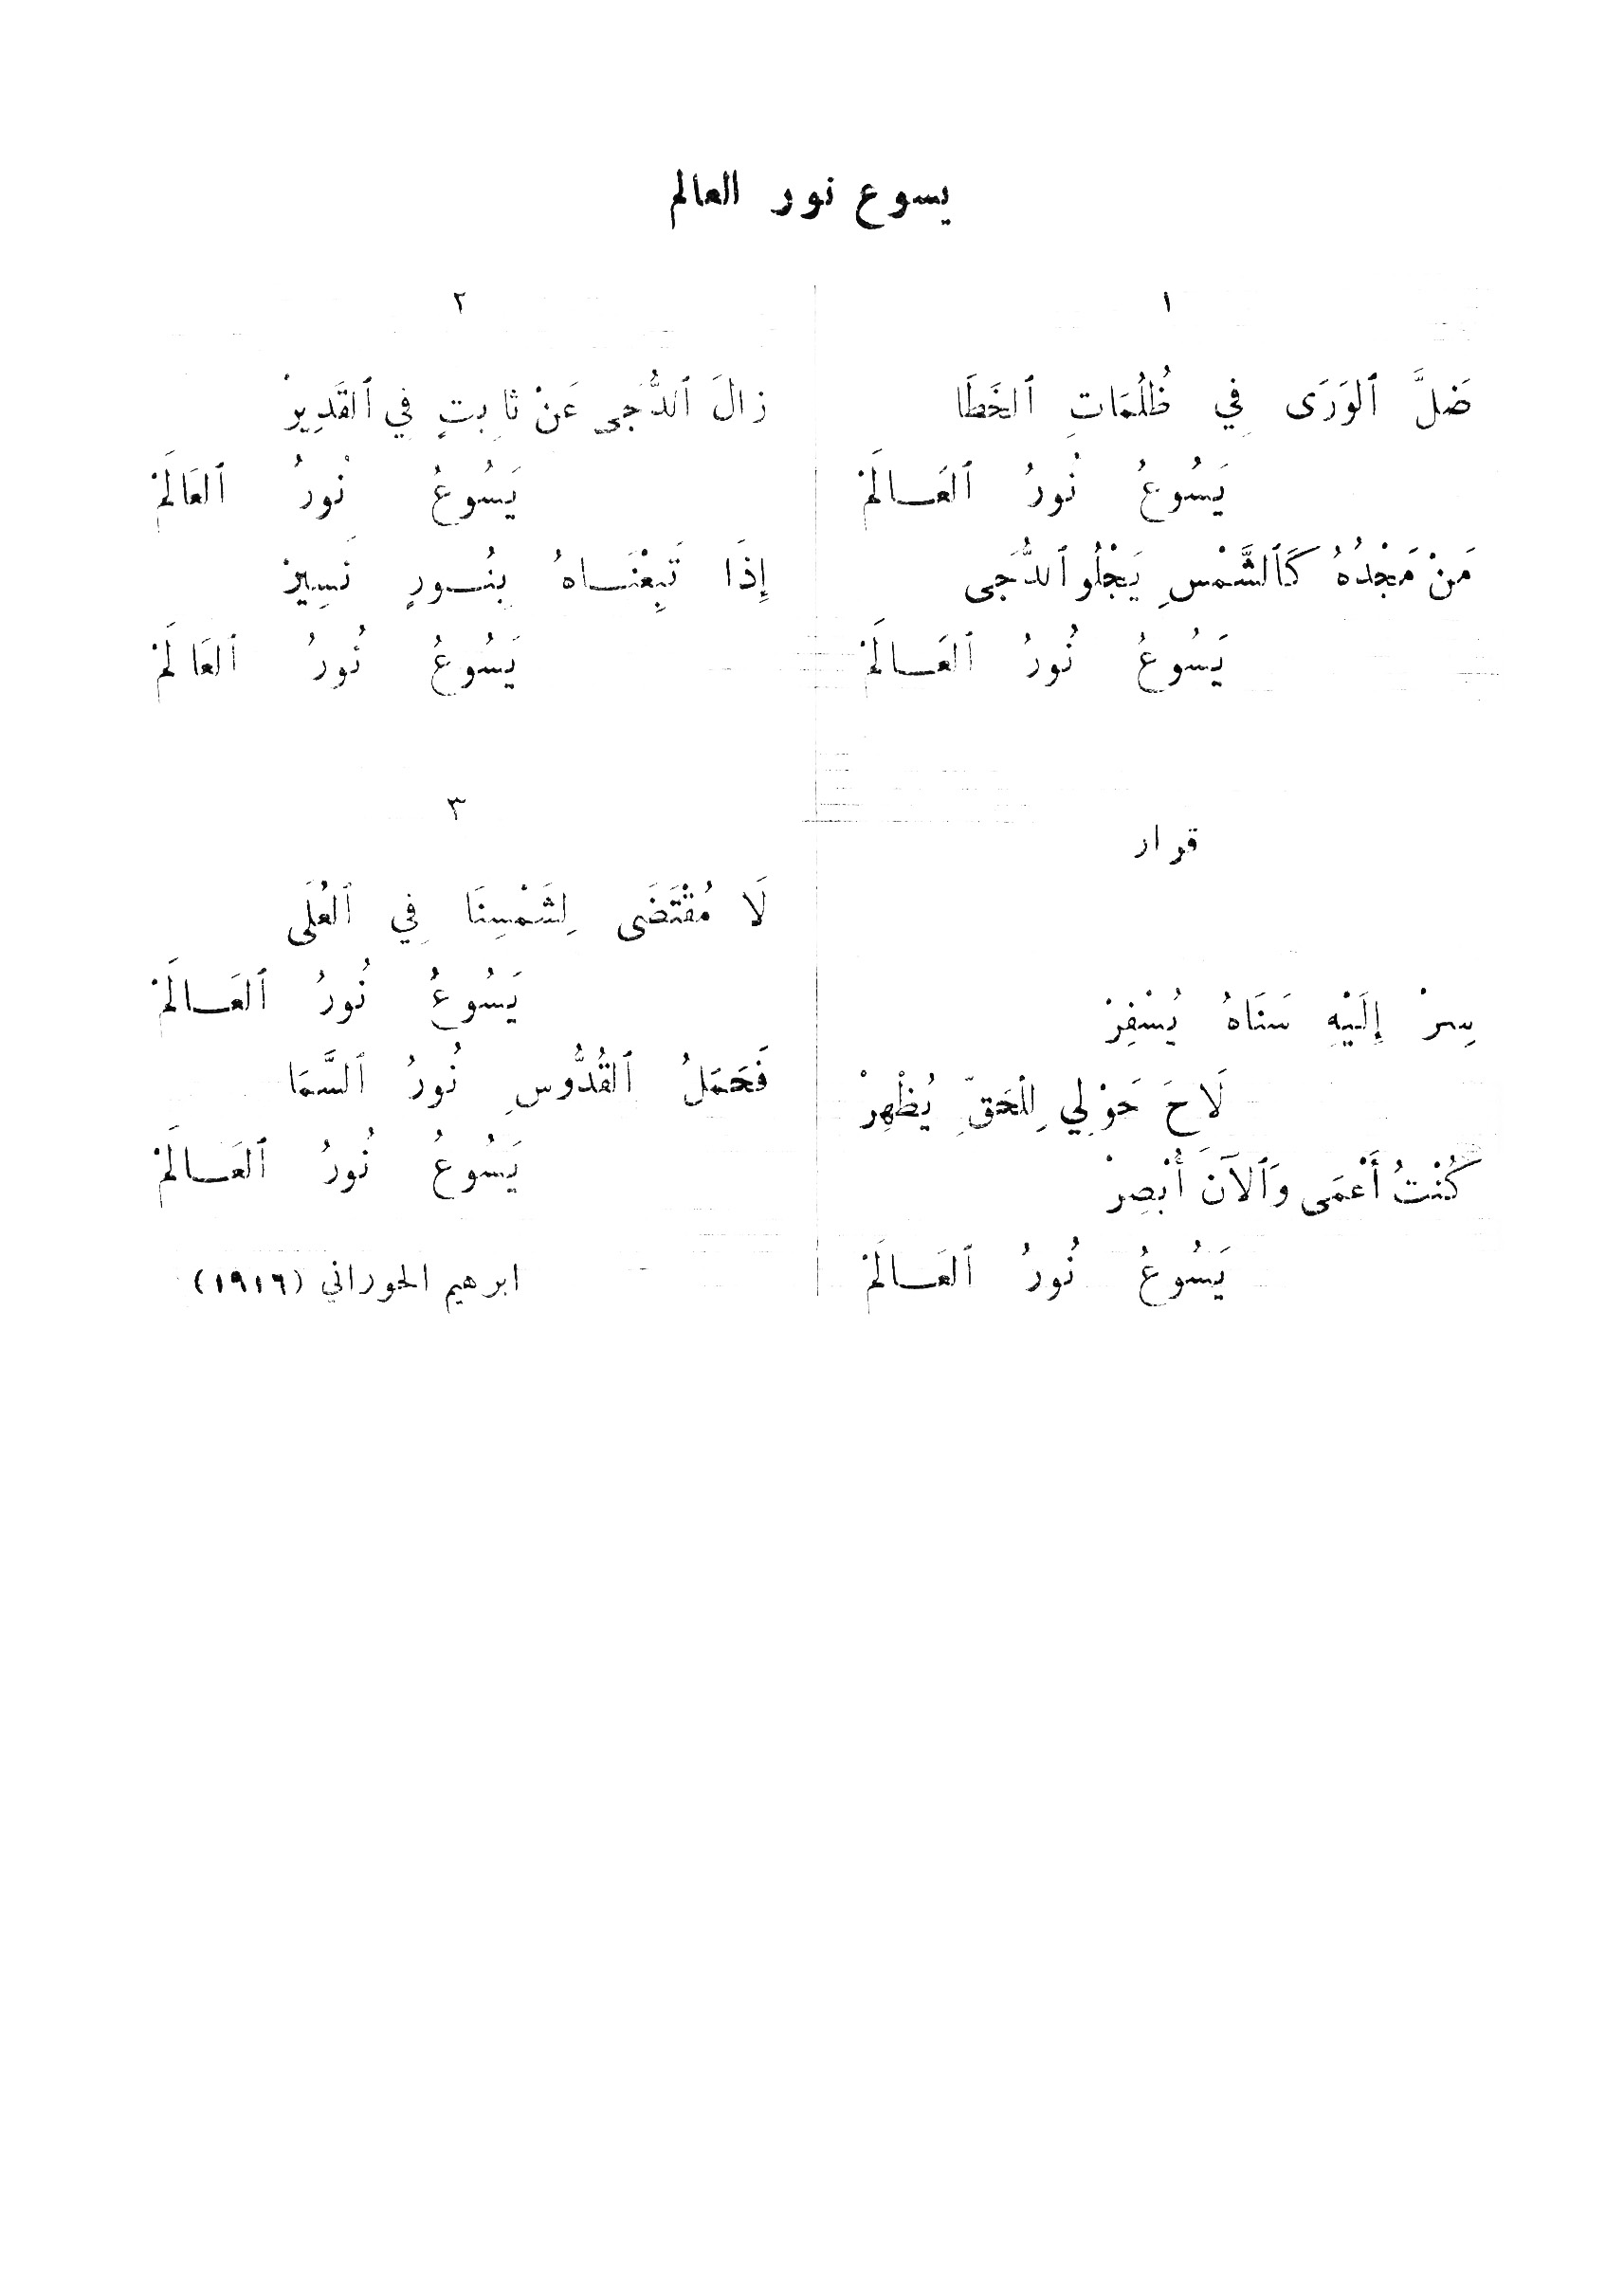 يسوع نور العالم
١
ضَلَّ ٱلوَرَى فِي ظُلُمَاتِ ٱلخَطَا
يَسُوعُ نُورُ ٱلعَـالَمْ
مَنْ مَجْدُهُ كَٱلشَّمْسِ يَجْلُو ٱلدُّجَى
يَسُوعُ نُورُ ٱلعَـالَمْ
قرار
سِرْ إِلَيْهِ سَنَاهُ يُسْفِرْ
لَاحَ حَوْلِي لِلْحَقِّ يُظْهِرْ
كُنْتُ أَعْمَى وَٱلآنَ أُبْصِرْ
يَسُوعُ نُورُ ٱلعَـالَمْ
٢
زالَ ٱلدُّجَى عَنْ ثابِتٍ فِي ٱلقَدِيرْ
يَسُوعُ نُورُ ٱلعَالَمْ
إِذَا تَبِعْنَـاهُ بِنُـورٍ نَسِيرْ
يَسُوعُ نُورُ ٱلعَالَمْ
٣
لَا مُقْتَضَى لِشَمْسِنَا فِي ٱلعُلَى
يَسُوعُ نُورُ ٱلعَـالَمْ
فَحَمَلُ ٱلقُدُّوسِ نُورُ ٱلسَّمَا
يَسُوعُ نُورُ ٱلعَـالَمْ
ابرهيم الحوراني (١٩١٦)